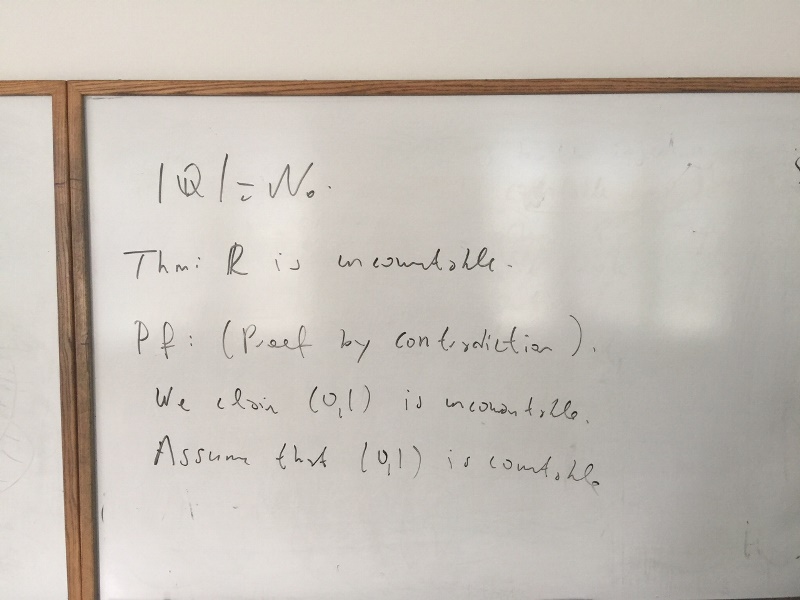 |ℚ| = ℵ₀.
Thm: ℝ is uncountable.
Pf: (Proof by contradiction).
We claim (0,1) is uncountable.
Assume that (0,1) is countable